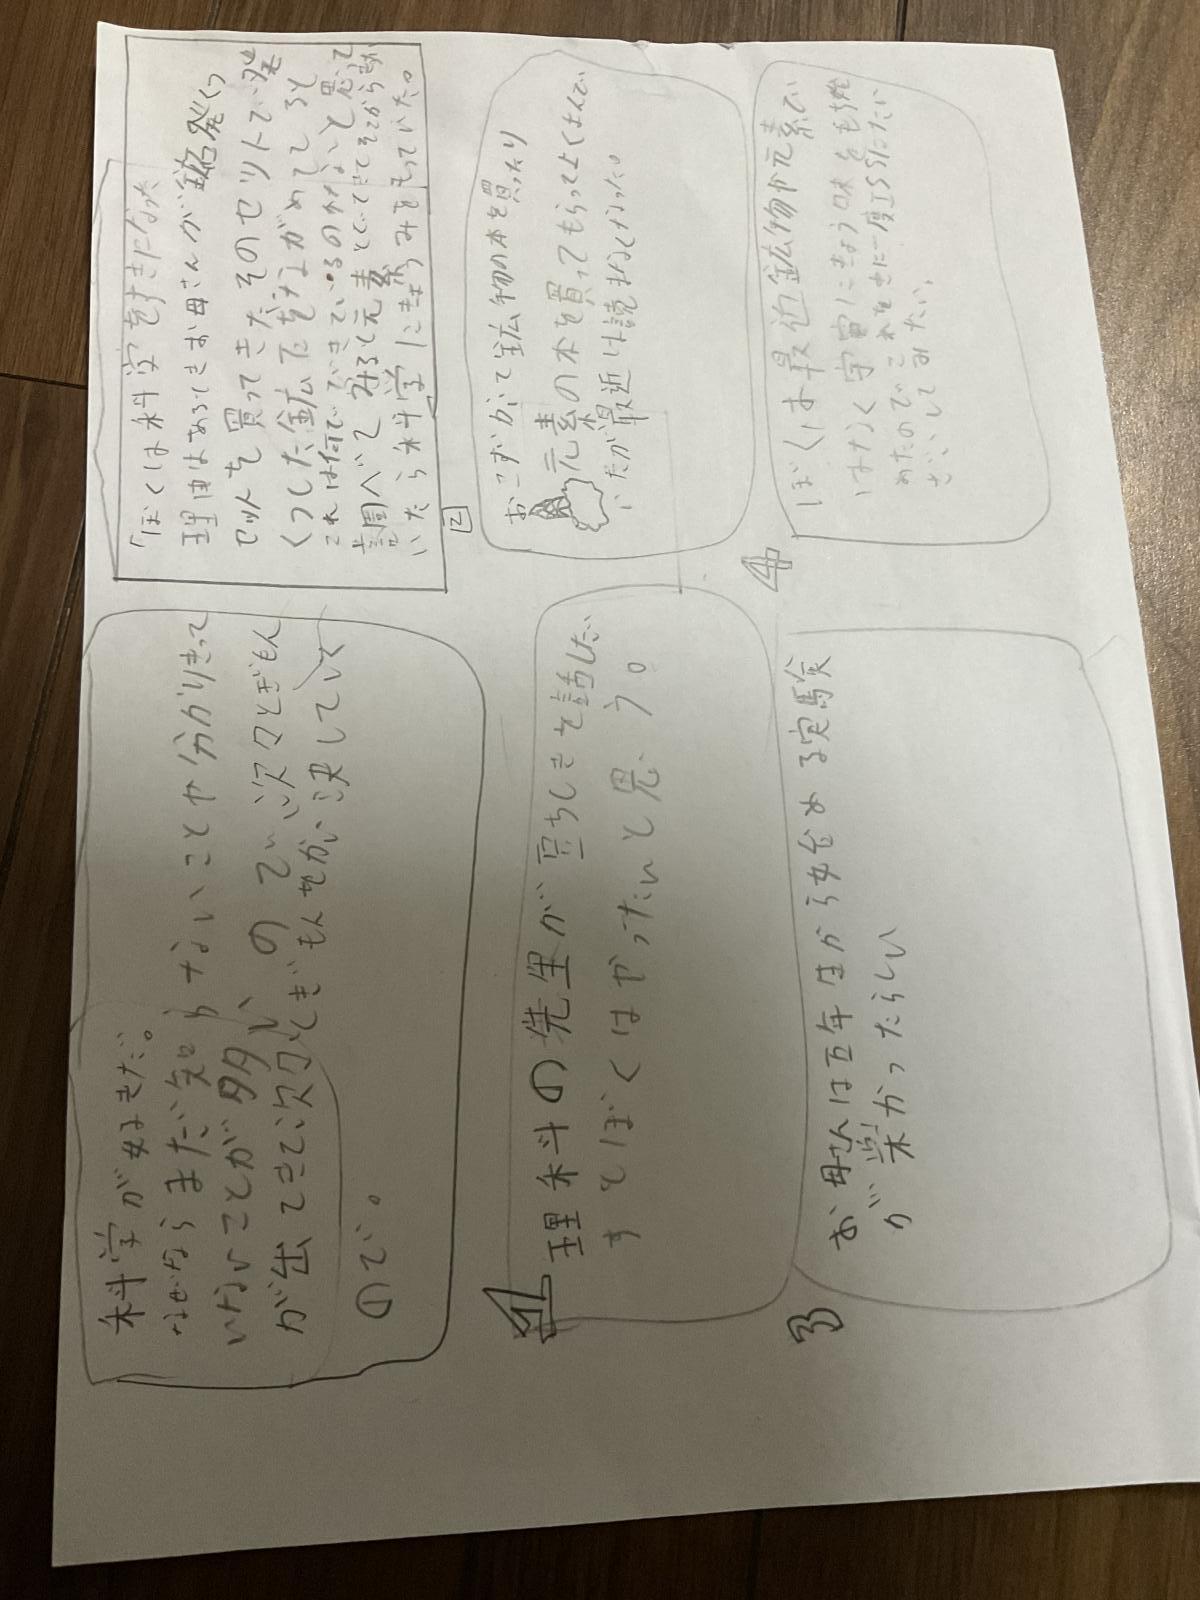 科学が好きだ。
なぜならまだ知らないことや分かりきって
いないことが多いので次々とぎもん
が出てきて次々とぎもんをかい決していく
ので。
1
理科の先生が豆ちしきを話したい
すとぼくはやったいと思う。
3
お母さんは五年生から始める実験
が楽かったらしい
「ぼくは科学をすきになった
理由はあるときお母さんが鉱発くつ
セットを買ってきたそのセットで発
くつした鉱石をながめてると
これは何でできているのかなと思って
調べて みると元素とでてきてそこから
いたら科学にきょうみをもっていた。
2
おこずかいで鉱物の本を買ったり
元素の本を買ってもらってよくよんで
いたが最近は読まなくなった。
4
ぼくは最近鉱物か元素で
はなく宇宙にきょう味をもち始
めたのでこれをきに一度ISSにたい
ざいしてみたい。